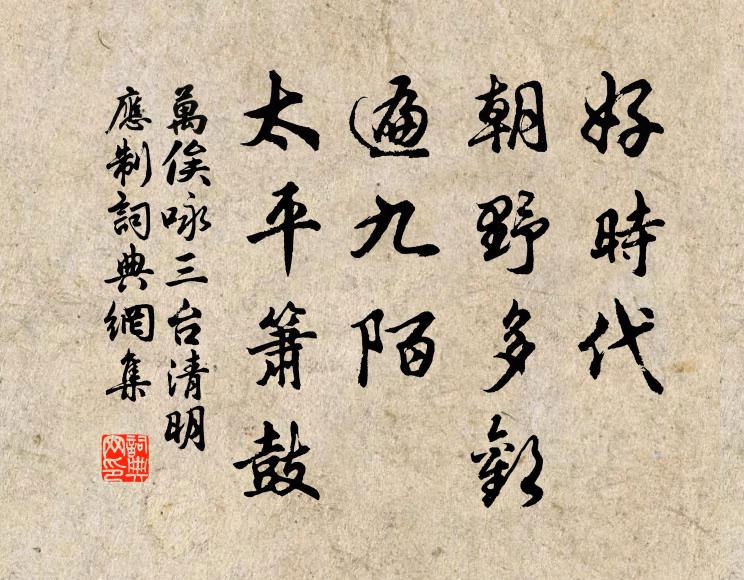 好時代
朝野多歡
遍九陌
太平簫鼓
萬俟咏三台清明
應制詞典網集
詞典网印